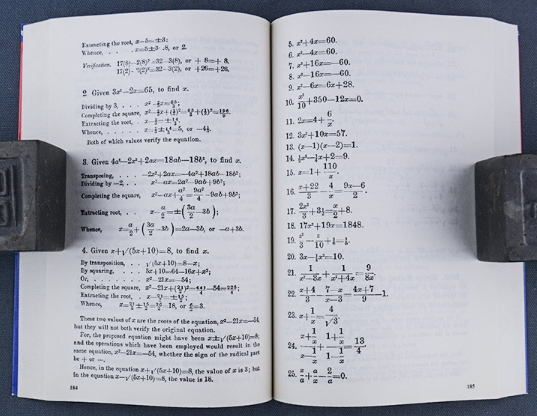 Extracting the root, x−5=±3;
Whence, . . . . x=5±3=8, or 2.
Verification.
2. Given 3x²−2x=65, to find x.
Dividing by 3, . . . .
Completing the square,
Extracting the root, . .
Whence, . . . .
Both of which values verify the equation.
3. Given 4a²−2x²+2ax=18ab−18b², to find x.
Transposing, . . . . −2x²+2ax=−4a²+18ab−18b²;
Dividing by −2, . . x²−ax=2a²−9ab+9b²;
Completing the square, x²−ax+a²/4=9a²/4−9ab+9b²;
Extracting root, . . x−a/2=±(3a/2−3b);
Whence, x=a/2+(3a/2−3b)=2a−3b, or −a+3b.
4. Given x+√(5x+10)=8, to find x.
By transposition, . . √(5x+10)=8−x;
By squaring, . . . 5x+10=64−16x+x²;
Or, . . . . . x²−21x=−54;
Completing the square, x²−21x+(21/2)²=441/4−54=225/4;
Extracting the root,
Whence,
These two values of x are the roots of the equation, x²−21x=−54
but they will not both verify the original equation.
For, the proposed equation might have been x±√(5x+10)=8;
and the operations which have been employed would result in the
same equation, x²−21x=−54, whether the sign of the radical part
be + or −.
Hence, in the equation x+√(5x+10)=8, the value of x is 3; but
in the equation x−√(5x+10)=8, the value is 18.
184
5. x²+4x=60.
6. x²−4x=60.
7. x²+16x=−60.
8. x²−16x=−60.
9. x²−6x=6x+28.
10. x²/10+350−12x=0.
11. 2x=4+6/x.
12. 3x²+10x=57.
13. (x−1)(x−2)=1.
14.
15. x=1+110/x.
16. (x+22)/3−4/x=(9x−6)/2.
17.
18. 17x²+19x=1848.
19.
20.
21. 1/(x²−3x)+1/(x²+4x)=9/8x.
22. (x+4)/3−(7−x)/(x−3)=(4x+7)/9−1.
23. x+1/x=4/√3.
24. (x+1/x)/(x−1/x)+(1+1/x)/(1−1/x)=13/4.
25. x/a+a/x−2/a=0.
185